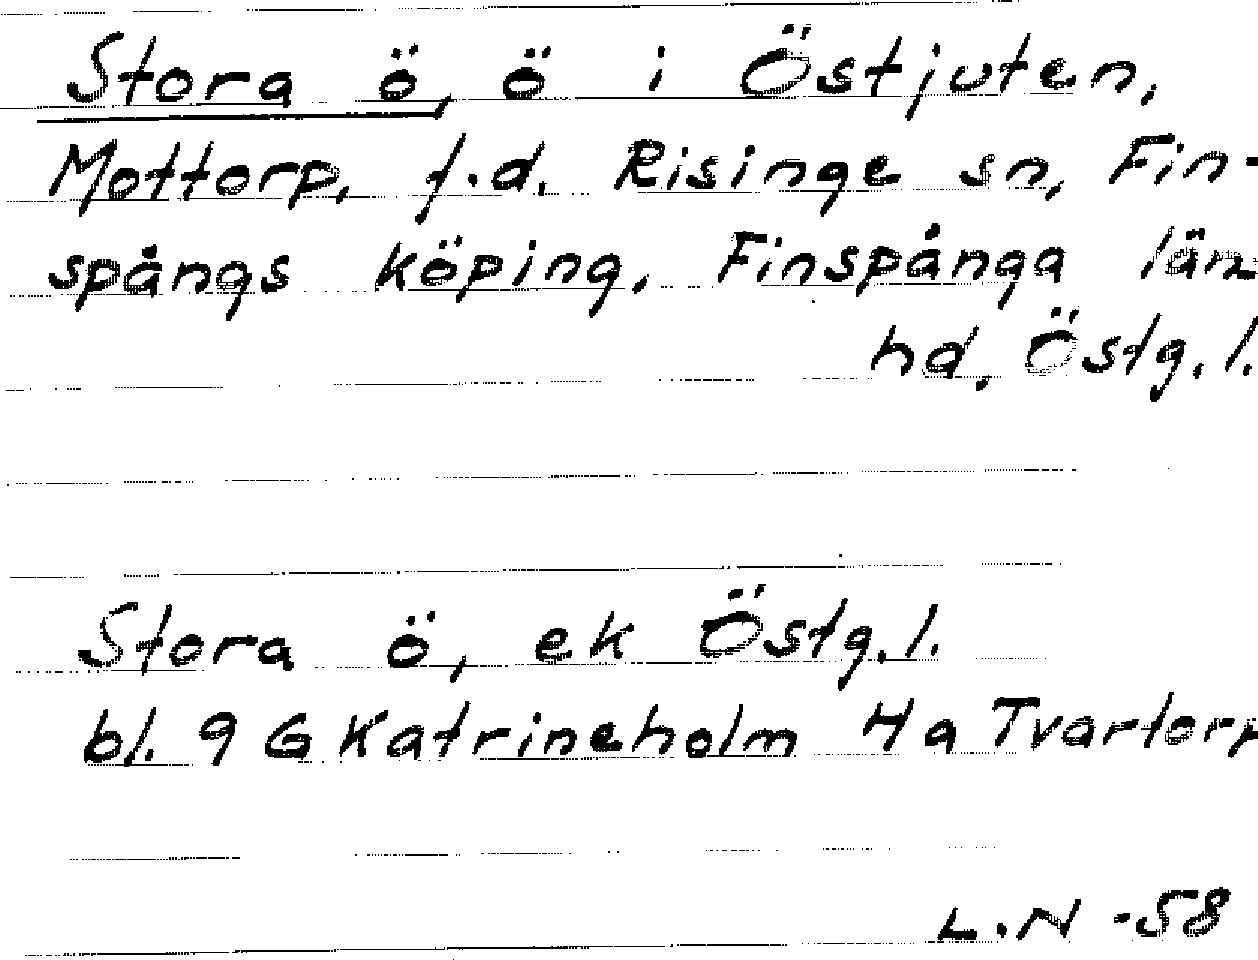 Stora ö, ö i Östjuten,
Mottorp, f.d. Risinge sn, Fin-
spångs köping, Finspånga län
hd, Östg.l.
Stora ö, ek Östg.l.
bl. 9 G Katrineholm H a Tvartorp
L.N -58